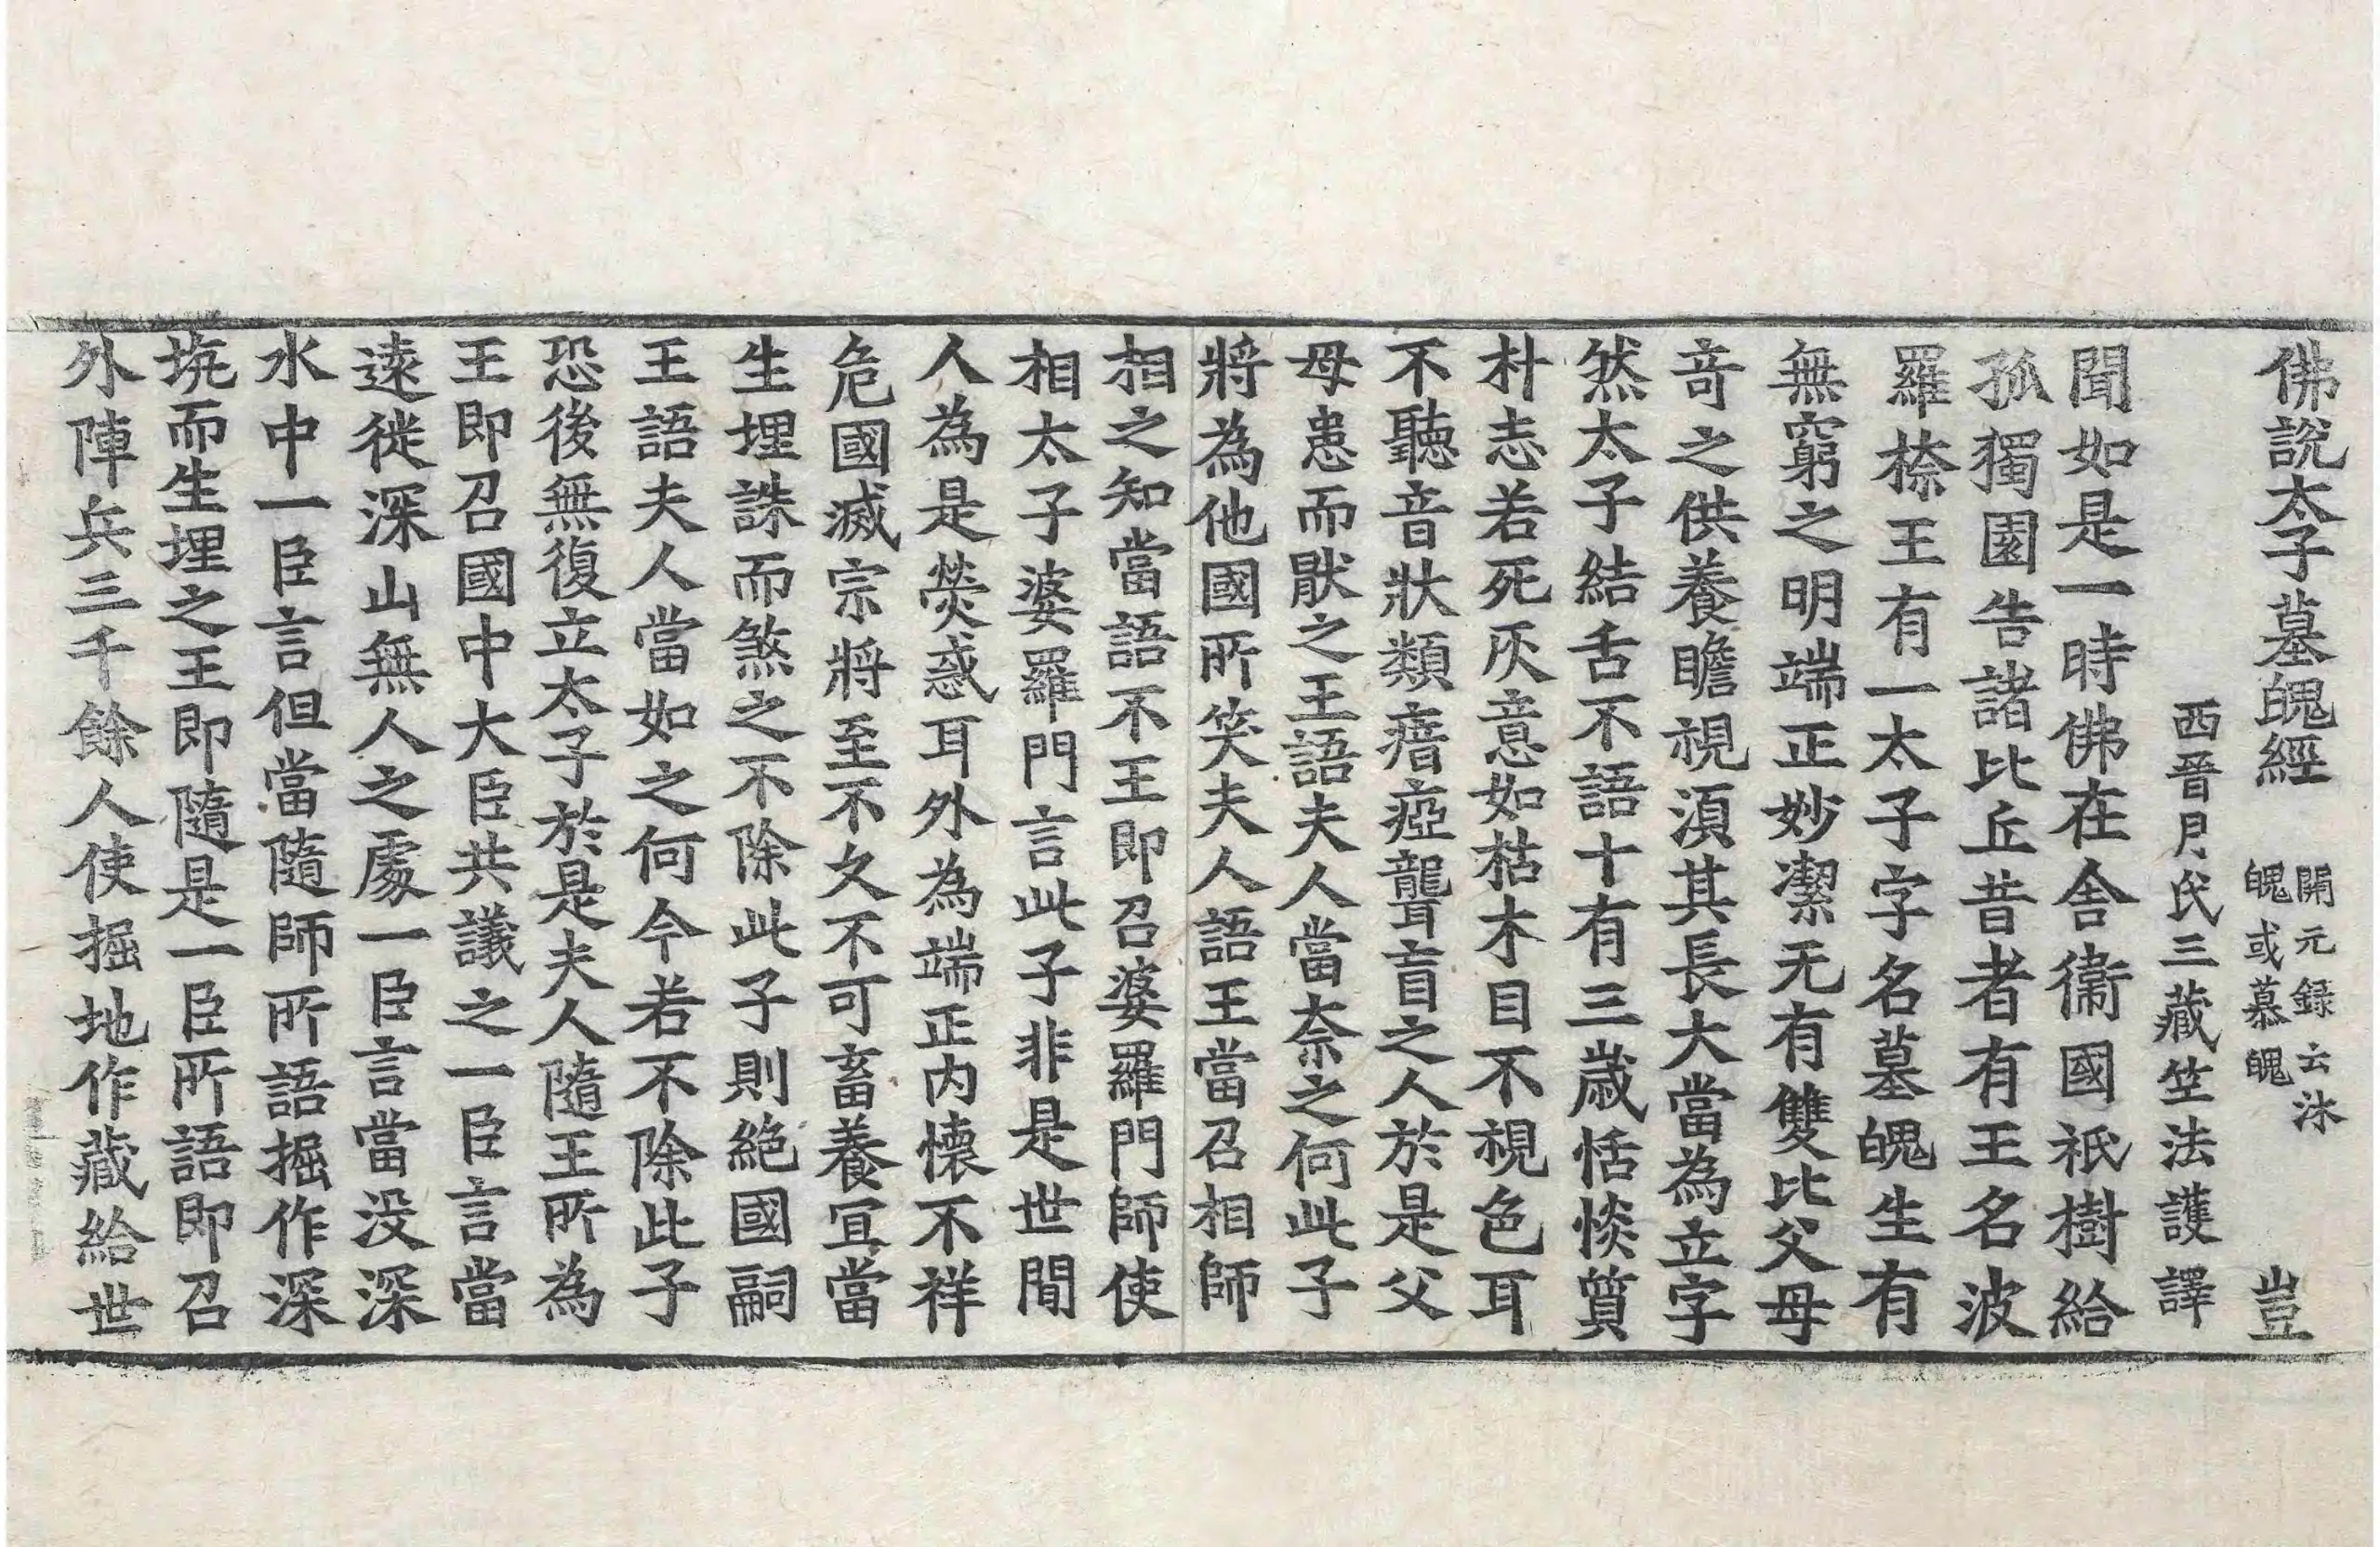 佛說太子墓魄經 開元録云沐魄或慕魄 豈
西晉月氏三藏竺法護譯
聞如是一時佛在舍衞國祇樹給
孤獨園告諸比丘昔者有王名波
羅㮈王有一太子字名墓魄生有
無窮之明端正妙潔无有雙比父母
竒之供養瞻視湏其長大當為立字
然太子結舌不語十有三歲恬惔質
朴志若死灰意如枯木目不視色耳
不聽音狀類瘖瘂聾盲之人於是父
母患而猒之王語夫人當柰之何此子
將為他國所笑夫人語王當召相師
相之知當語不王即召婆羅門師使
相太子婆羅門言此子非是世間
人為是熒惑耳外為端正内懷不祥
危國滅宗將至不久不可畜養宜當
生埋誅而煞之不除此子則絕國嗣
王語夫人當如之何今若不除此子
恐後無復立太子於是夫人隨王所為
王即召國中大臣共議之一臣言當
遠徙深山無人之處一臣言當没深
水中一臣言但當隨師所語掘作深
坑而生埋之王即隨是一臣所語即召
外陣兵三千餘人使掘地作藏給世